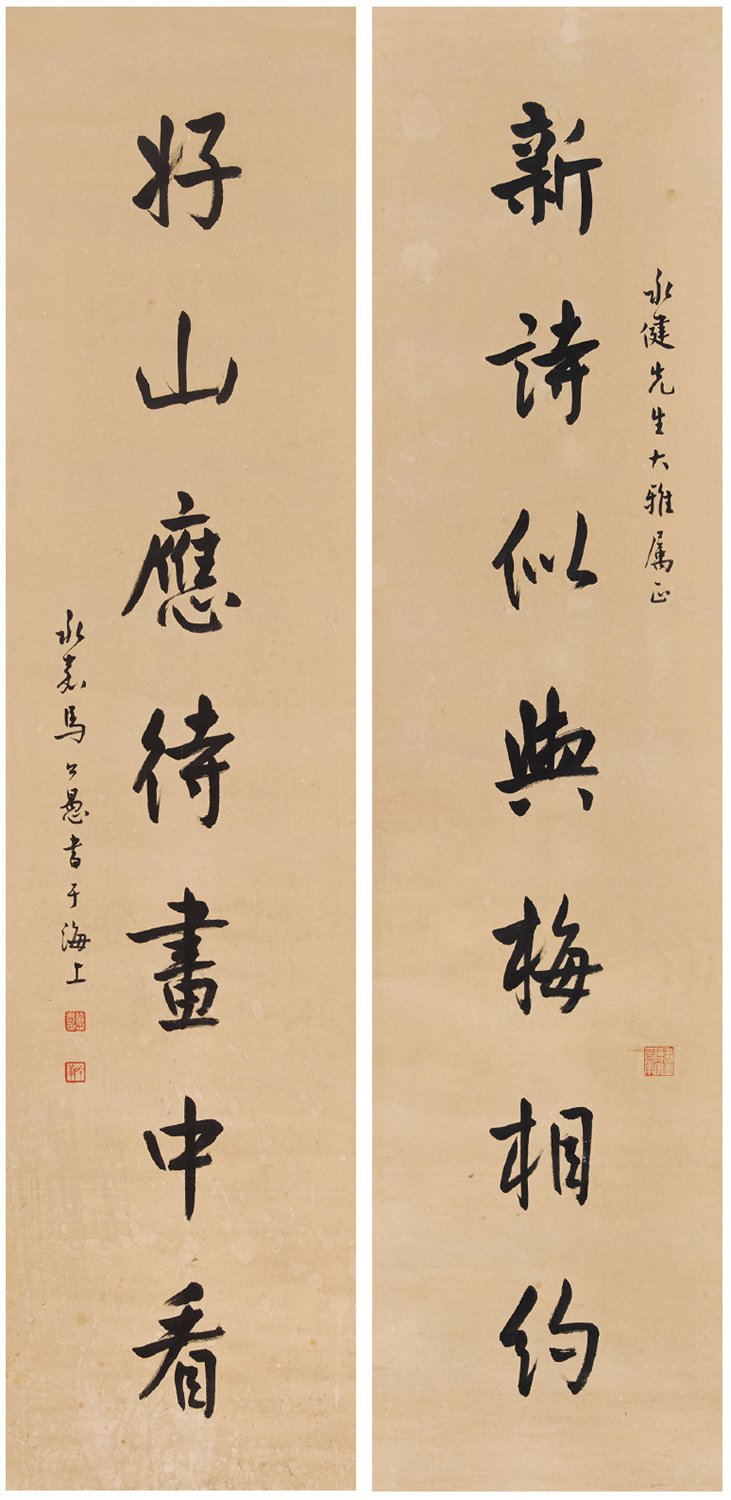 永健先生大雅属正
新詩似與梅相約
好山應待畫中看
永嘉馬公愚書于海上